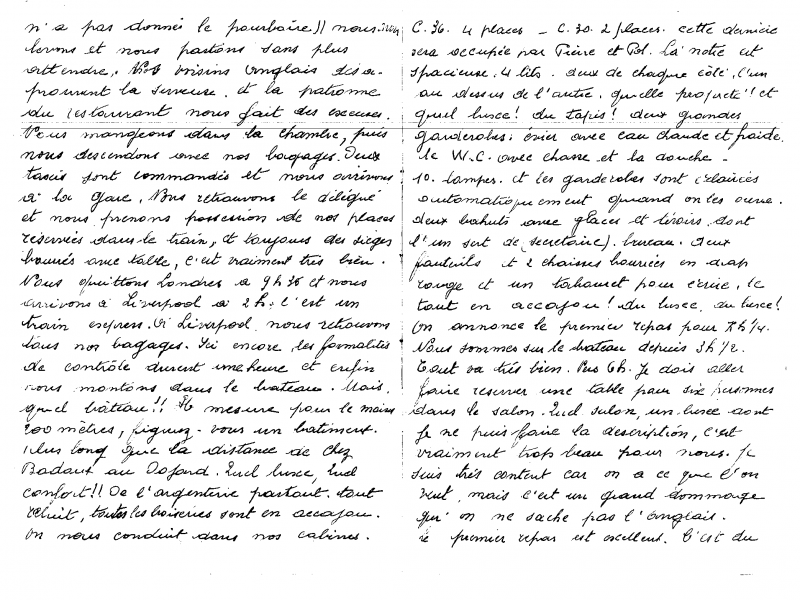 n'a pas donné le pourboire)) nous nous
levons et nous partons sans plus
attendre. Nos voisins anglais désa-
prouvent la serveuse. et la patronne
du restaurant nous fait des excuses.
Nous mangeons dans la chambre, puis
nous descendons avec nos bagages. Deux
taxis sont commandés et nous arrivons
à la gare. Nous retrouvons le délégué
et nous prenons possession de nos places
réservées dans le train, et toujours des sièges
bourrés avec table, c'est vraiment très bien.
Nous quittons Londres à 9h36 et nous
arrivons à Liverpool à 2h. c'est un
train express. A Liverpool nous retrouvons
tous nos bagages. Ici encore les formalités
de contrôle durent une heure et enfin
nous montons dans le bateau. Mais,
quel bâteau!! Il mesure pour le moins
200 mètres, figurez-vous un batiment
plus long que la distance de chez
Badaux au Dofard. Quel luxe, quel
confort!! De l'argenterie partout. tout
reluit, toutes les boiseries sont en accajou.
On nous conduit dans nos cabines.
C. 36. 4 places - C. 30. 2 places. cette dernière
sera occupée par Pierre et Pol. La notre est
spacieuse. 4 lits. deux de chaque côté, l'un
au dessus de l'autre. quelle propreté! et
quel luxe! du tapis! deux grandes
garderobes; évier avec eau chaude et froide.
le W.C. avec chasse et la douche -
10. lampes. et les garderobes sont éclairées
automatiquement quand on les ouvre.
deux bahuts avec glaces et tiroirs dont
l'un sert de (secrétaire). bureau. deux
fauteuils et 2 chaises bourrées en drap
rouge et un tabouret pour écrire, le
tout en accajou! du luxe, du luxe!
On annonce le premier repas pour 7h 1/4.
Nous sommes sur le bateau depuis 3h 1/2.
Tout va très bien. Vers 6h. je dois aller
faire reserver une table pour six personnes
dans le salon. Quel salon, un luxe dont
je ne puis faire la description, c'est
vraiment trop beau pour nous. Je
suis très content car on a ce que l'on
veut, mais c'est un grand dommage
qu'on ne sache pas l'anglais.
Le premier repas est excellent. C'est du